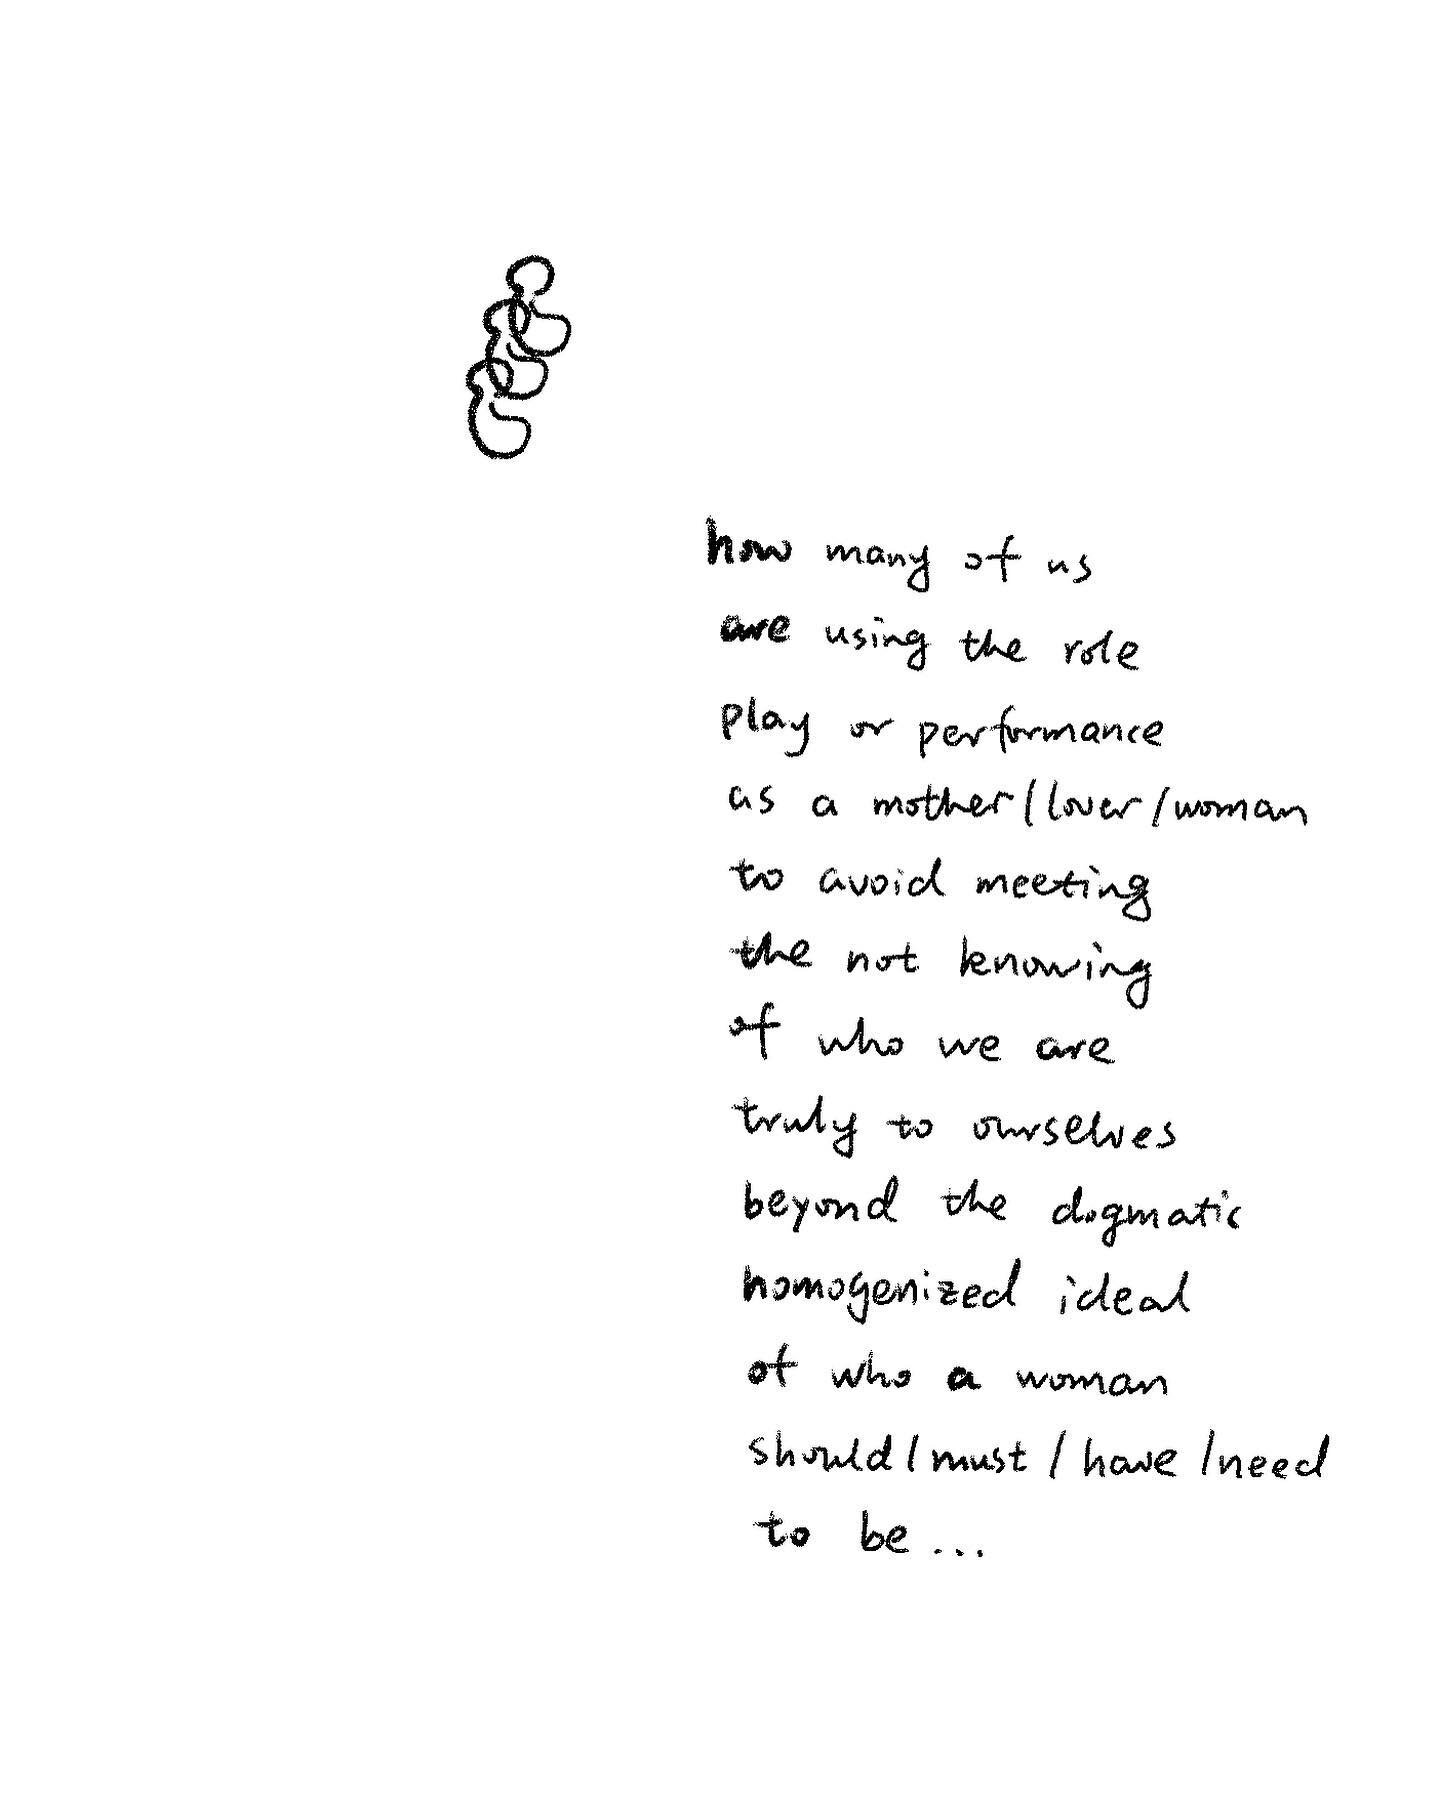 how many of us
are using the role
play or performance
as a mother/lover/woman
to avoid meeting
the not knowing
of who we are
truly to ourselves
beyond the dogmatic
homogenized ideal
of who a woman
should/must/have/need
to be...